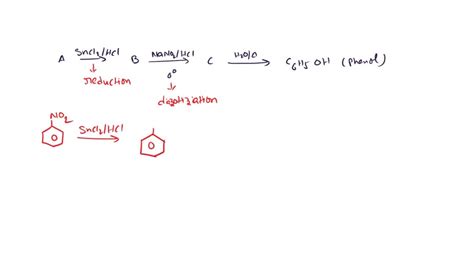 A SnCl2/HCl B NaNO2/HCl C H2O/Δ C6H5OH (phenol)
reduction 0°
diazotization
NO2
SnCl2/HCl